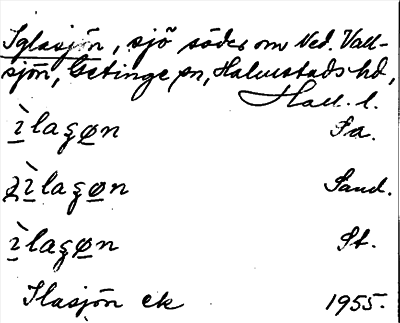 Iglasjön, sjö söder om Ned. Vall-
sjön, Getinge sn, Halmstads hd,
Hall. l.
ìlagøn Fa.
ìlagøn Sand.
ìlagøn St.
Ilasjön ek 1955.